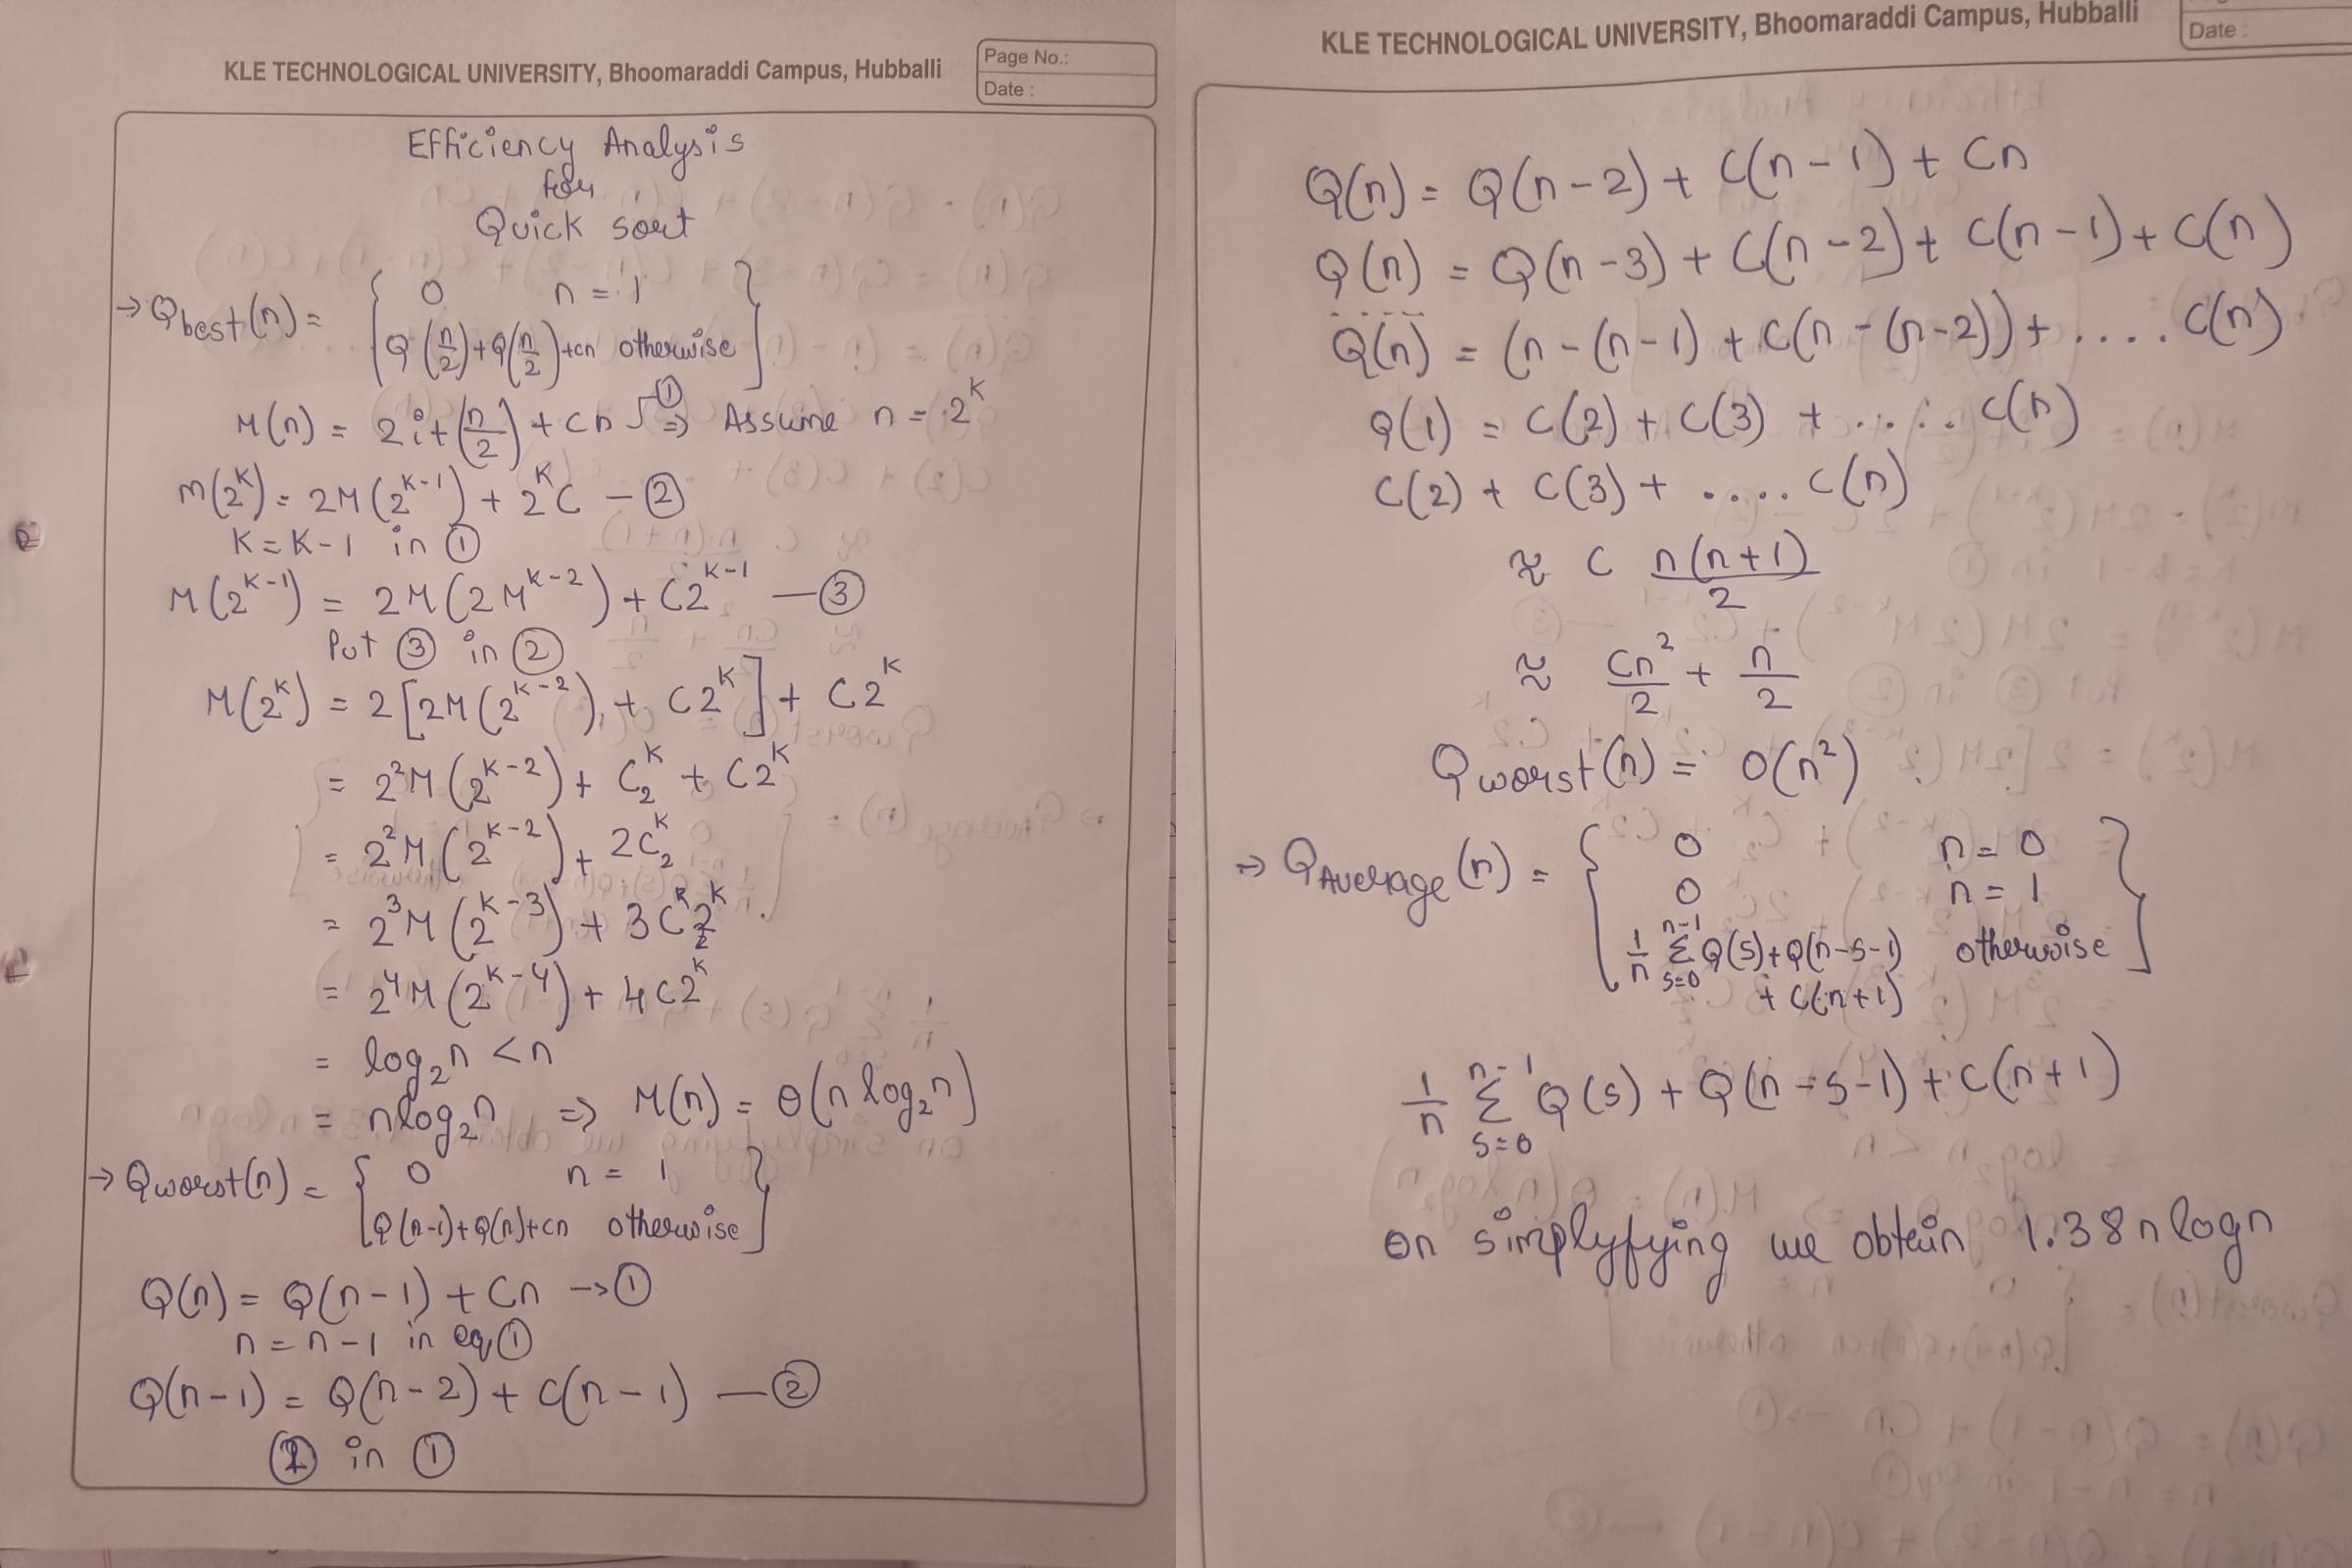 KLE TECHNOLOGICAL UNIVERSITY, Bhoomaraddi Campus, Hubballi
Page No.:
Date :
Efficiency Analysis
for
Quick sort
→ Qbest(n) = { 0 n = 1
Q(n/2)+Q(n/2)+cn otherwise }
M(n) = 2i+(n/2) + cn ① ⇒ Assume n = 2^K
m(2^K) = 2M(2^K-1) + 2^K C - ②
K = K-1 in ①
M(2^K-1) = 2M(2M^K-2) + C2^K-1 — ③
Put ③ in ②
M(2^K) = 2[2M(2^K-2) + C2^K] + C2^K
= 2²M(2^K-2) + C2^K + C2^K
= 2²M(2^K-2) + 2C2^K
= 2³M(2^K-3) + 3C2^K
= 2⁴M(2^K-4) + 4C2^K
= log₂n < n
= nlog₂n ⇒ M(n) = θ(n log₂n)
→ Qworst(n) = { 0 n = 1
Q(n-1)+Q(n)+cn otherwise }
Q(n) = Q(n-1) + Cn → ①
n = n-1 in eq ①
Q(n-1) = Q(n-2) + C(n-1) — ②
② in ①
KLE TECHNOLOGICAL UNIVERSITY, Bhoomaraddi Campus, Hubballi
Date :
Q(n) = Q(n-2) + C(n-1) + Cn
Q(n) = Q(n-3) + C(n-2) + C(n-1) + C(n)
Q(n) = (n-(n-1) + C(n-(n-2)) + .... C(n)
Q(1) = C(2) + C(3) + ..... C(n)
C(2) + C(3) + ..... C(n)
≈ C n(n+1)/2
≈ Cn²/2 + n/2
Qworst(n) = O(n²)
→ QAverage(n) = { 0 n = 0
0 n = 1
1/n n-1 Σ s=0 Q(s)+Q(n-s-1) otherwise }
+ C(n+1)
1/n n-1 Σ s=0 Q(s) + Q(n-s-1) + C(n+1)
on simplyfying we obtain 1.38 n logn